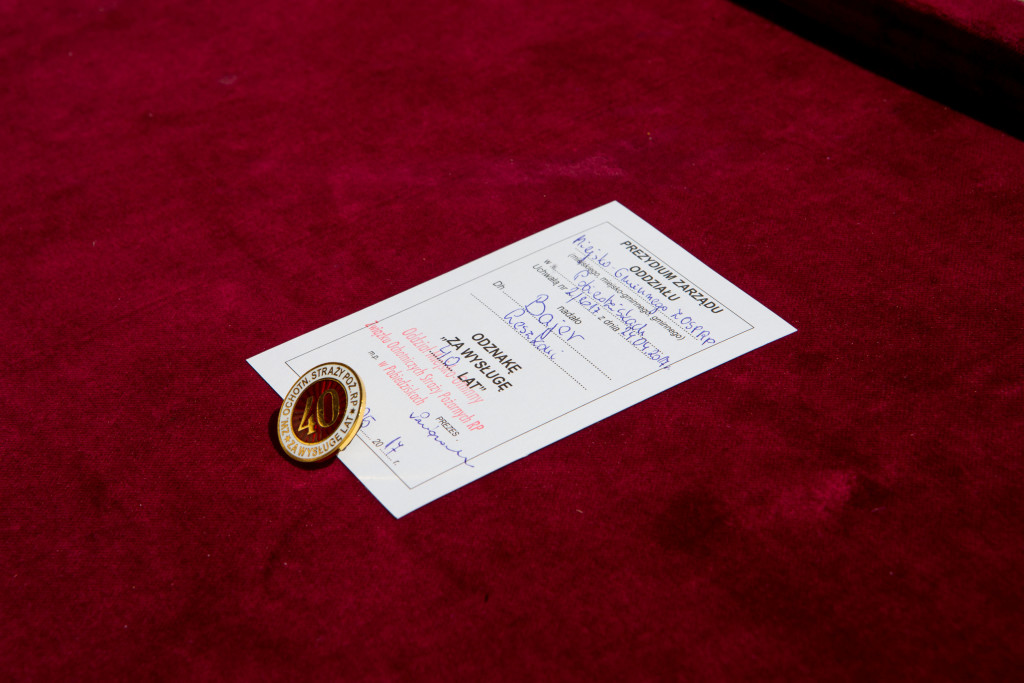 PREZYDIUM ZARZĄDU
ODDZIAŁU
Miejsko Gminnego ZOSPRP
(miejskiego, miejsko-gminnego gminnego)
w
Uchwałą nr 2/2017 z dnia 24.04.2017r.
nadało
Dh Bajer
Leszkowi
ODZNAKĘ
„ZA WYSŁUGĘ
40 LAT”
Oddział Miejsko-Gminny
Związku Ochotniczych Straży Pożarnych RP
w Pobiedziskach
m.p.
PREZES
20 17 r.
ZW. OCHOTN. STRAŻY POŻ. RP
40
ZA WYSŁUGĘ LAT